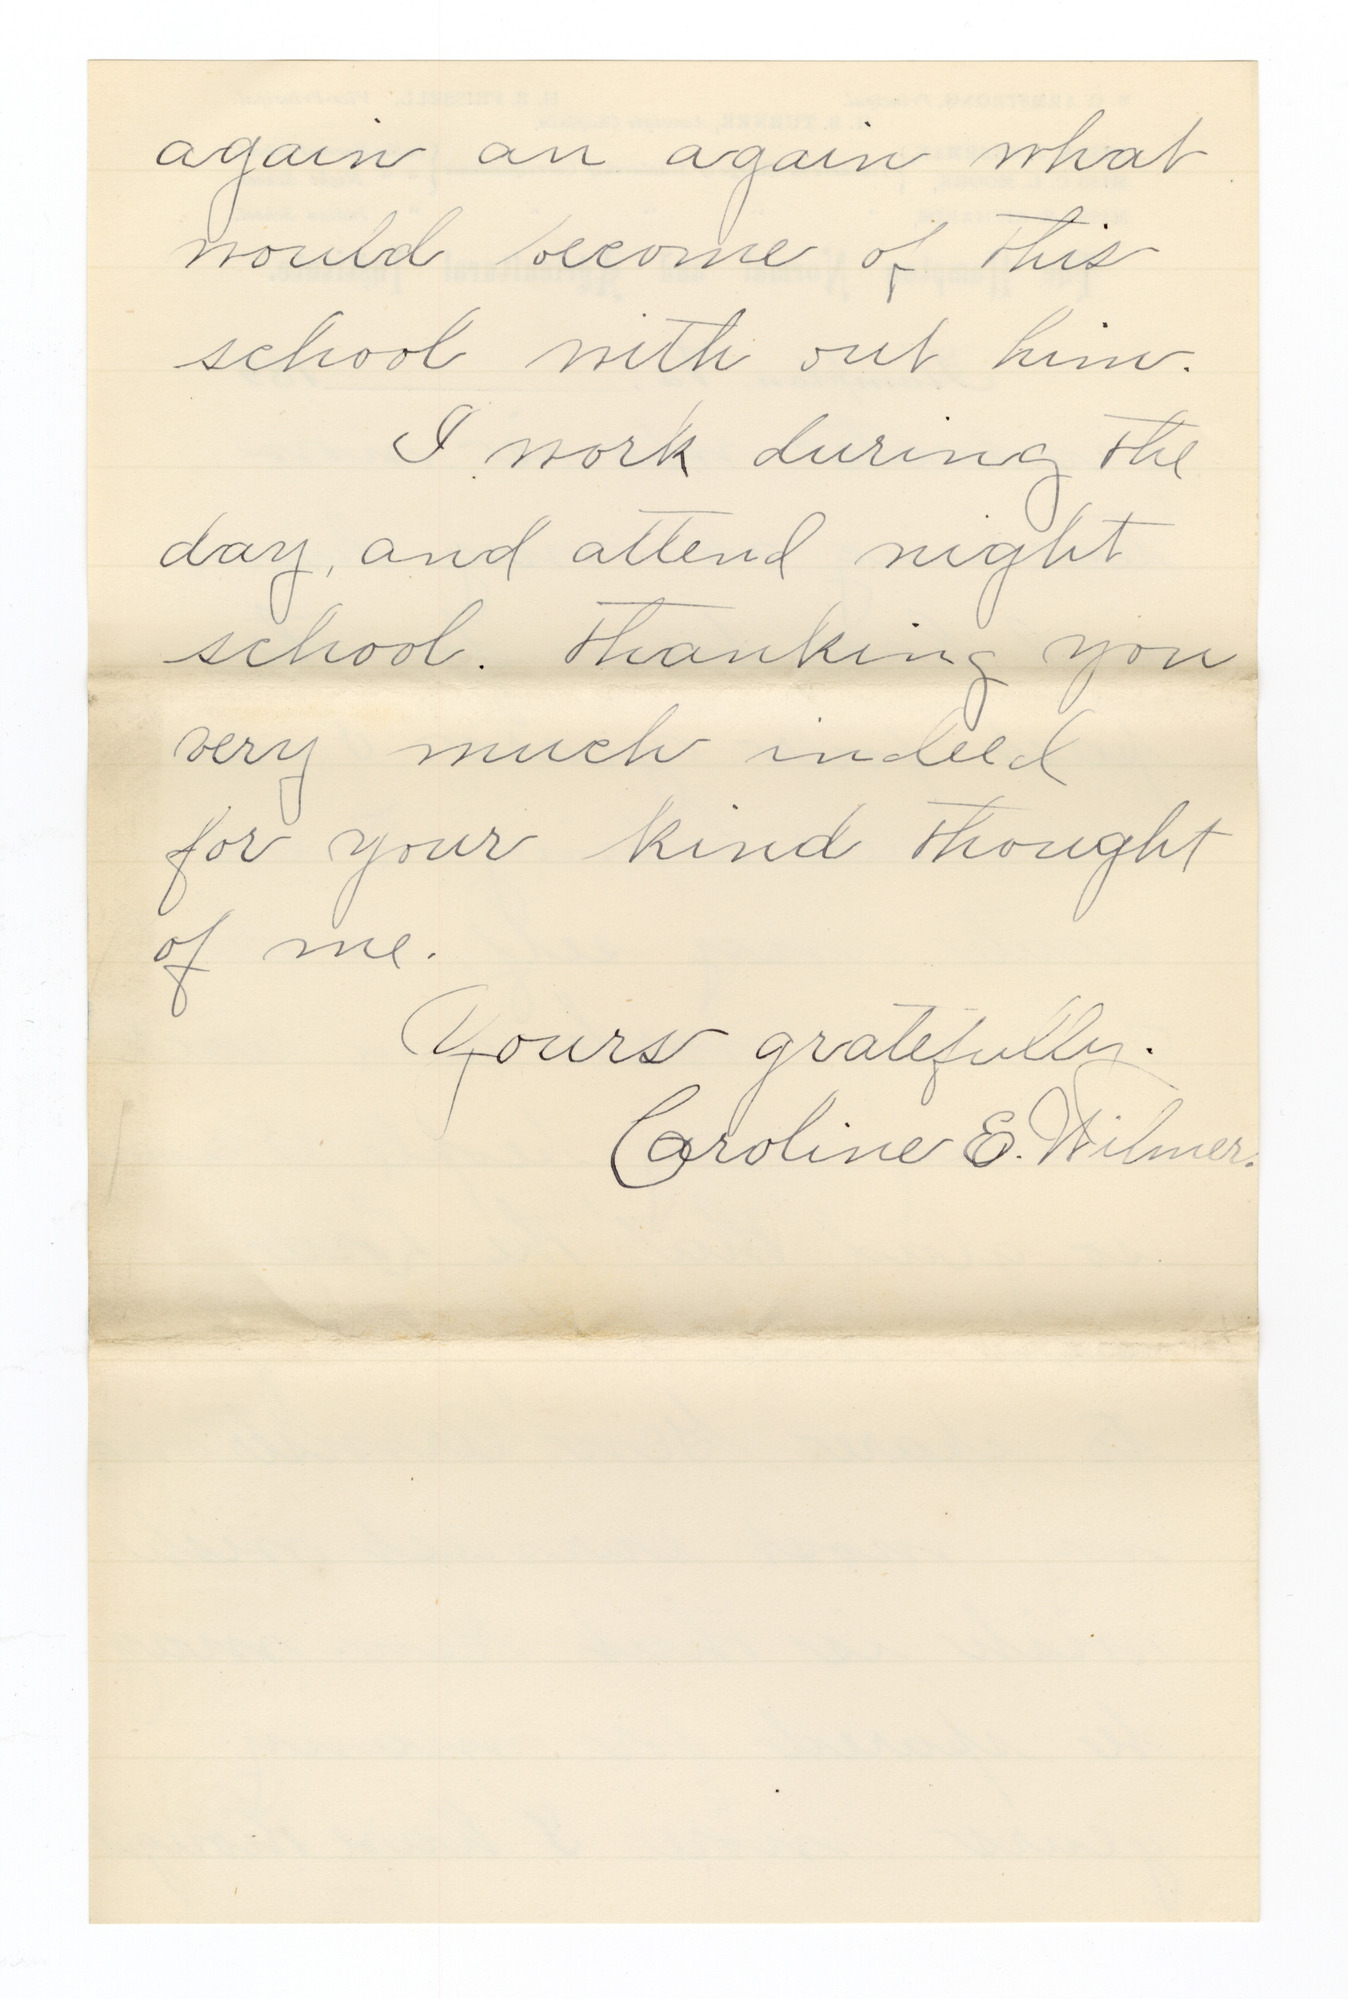 again an again what
would become of this
school with out him.
I work during the
day, and attend night
school. Thanking you
very much indeed
for your kind thought
of me.
Yours gratefully.
Caroline E. Wilmer.